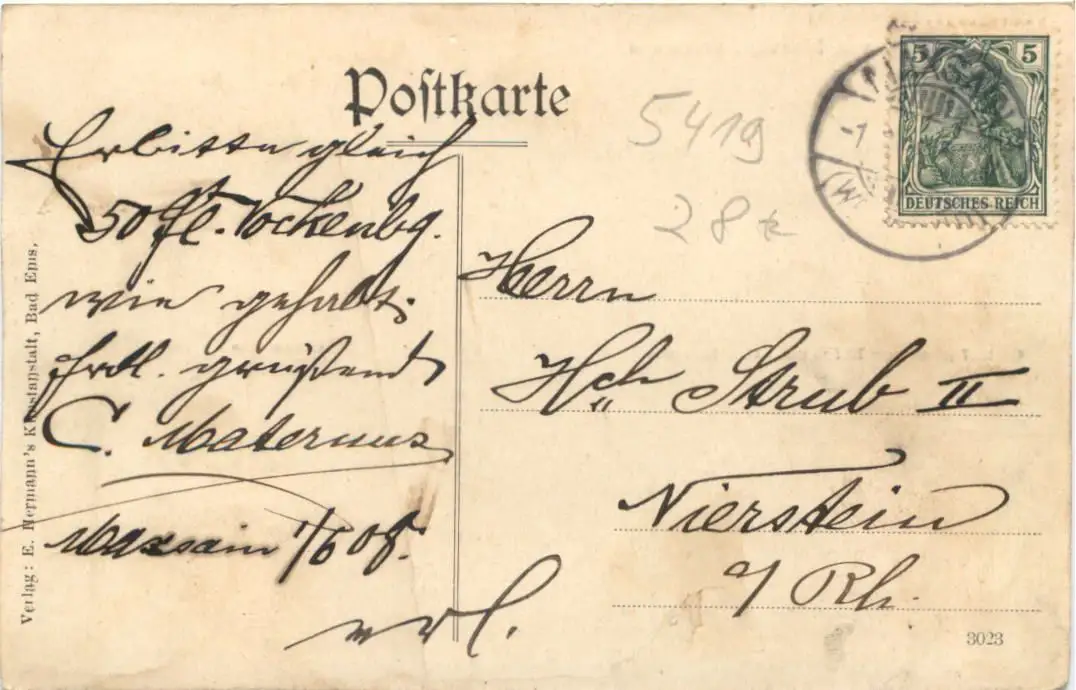 Postkarte
5 5
DEUTSCHES REICH
5419
28
Erbitte gleich
50 Fl. Vockenbg.
wie gehabt.
Frdl. grüßend
C. Maternus
Maxsain 1/6 08.
Herrn
Hch Strub II
Nierstein
a/ Rh.
Verlag: E. Hermann's Kunstanstalt, Bad Ems.
3023